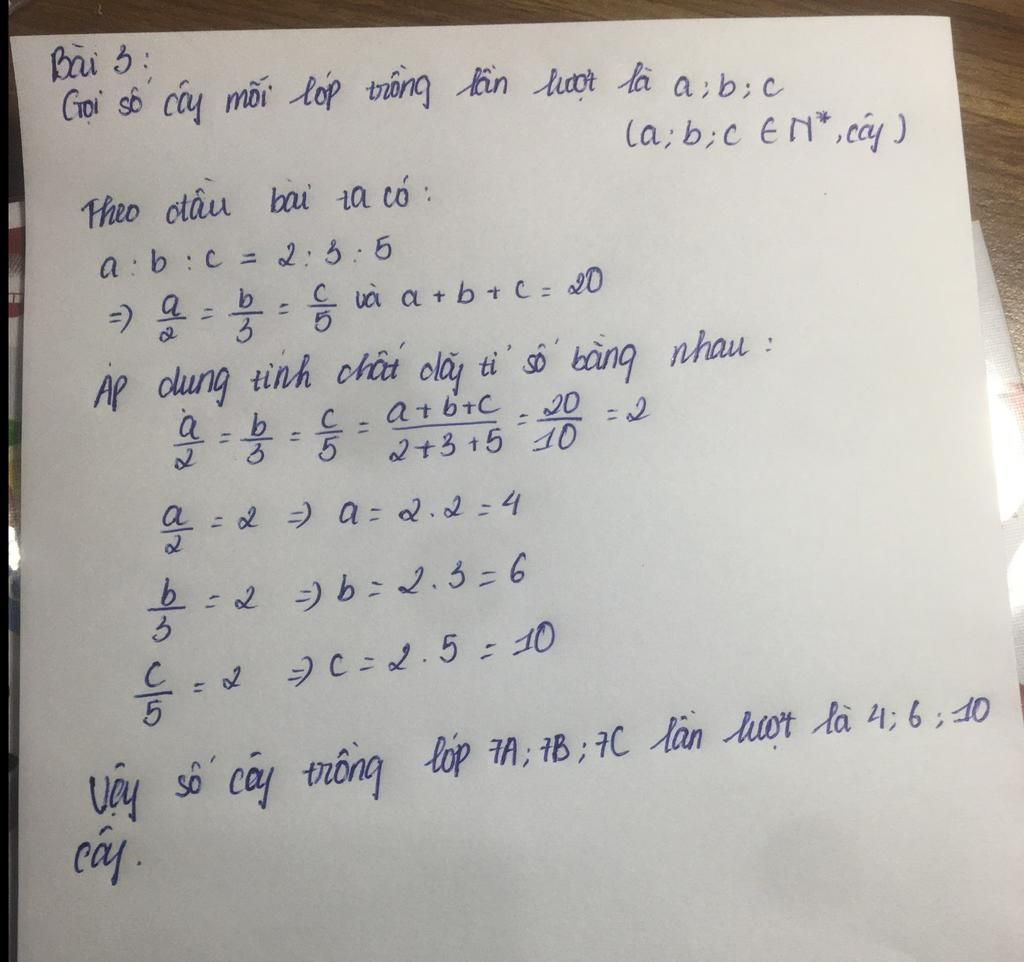 Bài 3:
Gọi số cây mỗi lớp trồng lần lượt là a; b; c
(a; b; c ∈ N*, cây)
Theo đầu bài ta có:
a : b : c = 2 : 3 : 5
=> a/2 = b/3 = c/5 và a + b + c = 20
Áp dung tính chất dãy tỉ số bằng nhau:
a/2 = b/3 = c/5 = (a+b+c)/(2+3+5) = 20/10 = 2
a/2 = 2 => a = 2.2 = 4
b/3 = 2 => b = 2.3 = 6
c/5 = 2 => c = 2.5 = 10
Vậy số cây trồng lớp 7A; 7B; 7C lần lượt là 4; 6; 10
cây.